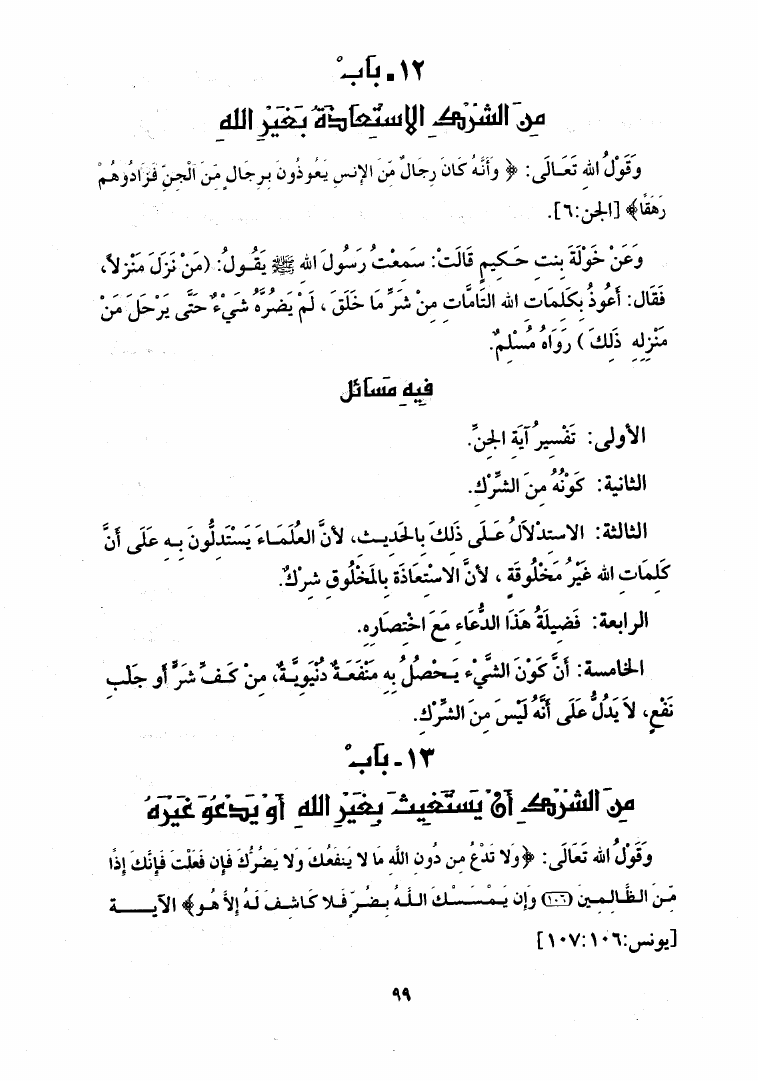 ١٢. بَابْ
مِنَ الشِّرْكِ الاِسْتِعَاذَةُ بِغَيْرِ اللهِ
وَقَوْلُ اللهِ تَعَالَى: ﴿ وَأَنَّهُ كَانَ رِجَالٌ مِّنَ الإِنسِ يَعُوذُونَ بِرِجَالٍ مِّنَ الْجِنِّ فَزَادُوهُمْ
رَهَقًا﴾ [الجن:٦].
وَعَنْ خَوْلَةَ بِنتِ حَكِيمٍ قَالَتْ: سَمِعْتُ رَسُولَ اللهِ ﷺ يَقُولُ: (مَنْ نَزَلَ مَنْزِلاً،
فَقَال: أَعُوذُ بِكَلِمَاتِ الله التَّامَّاتِ مِنْ شَرِّ مَا خَلَقَ ، لَمْ يَضُرَّهُ شَيْءٌ حَتَّى يَرْحَلَ مَنْ
مَنْزِلِهِ ذَلِكَ ) رَوَاهُ مُسْلِمٌ.
فِيهِ مَسَائل
الأولى: تَفْسِيرُ آيَةِ الجِنِّ.
الثانية: كَوْنُهُ مِنَ الشِّرْكِ.
الثالثة: الاستِدْلاَلُ عَلَى ذَلِكَ بِالحَدِيثِ، لأنَّ العُلَمَاءَ يَسْتَدِلُّونَ بِهِ عَلَى أَنَّ
كَلِمَاتِ الله غَيْرُ مَخْلُوقَةٍ ، لأَنَّ الاسْتِعَاذَةَ بِالمَخْلُوقِ شِرْكٌ.
الرابعة: فَضِيلَةُ هَذَا الدُّعَاءِ مَعَ اخْتِصَارِهِ.
الخامسة: أَنَّ كَوْنَ الشَّيْءِ يَحْصُلُ بِهِ مَنْفَعَةٌ دُنْيَوِيَّةٌ، مِنْ كَفِّ شَرٍّ أَو جَلْبِ
نَفْعٍ، لاَ يَدُلُّ عَلَى أَنَّهُ لَيْسَ مِنَ الشِّرْكِ.
١٣ـ بَابْ
مِنَ الشِّرْكِ أَنْ يَسْتَغِيثَ بِغَيْرِ اللهِ أَوْ يَدْعُوَ غَيْرَهُ
وَقَوْلُ الله تَعَالَى: ﴿وَلا تَدْعُ مِن دُونِ اللَّهِ مَا لا يَنفَعُكَ وَلا يَضُرُّكَ فَإِن فَعَلْتَ فَإِنَّكَ إِذًا
مِّنَ الظَّالِمِينَ (١٠٦) وَإِن يَمْسَسْكَ اللَّهُ بِضُرٍّ فَلا كَاشِفَ لَهُ إِلاَّ هُو﴾ الآيـة
[يونس:١٠٧:١٠٦]
٩٩